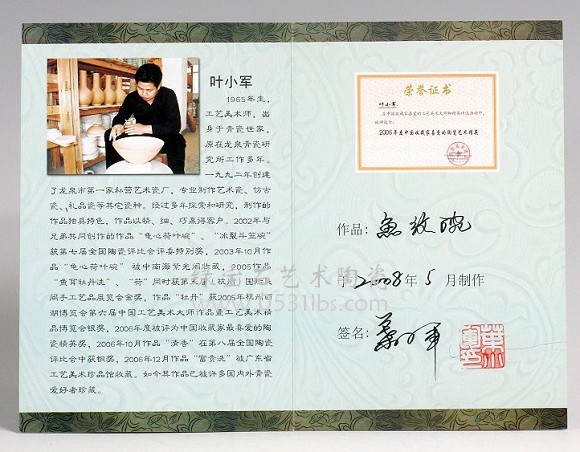 叶小军
1965年生,
工艺美术师, 出
身于青瓷世家,
原在龙泉青瓷研
究所工作多年。
一九九二年创建
了龙泉市第一家私营艺术瓷厂, 专业制作艺术瓷、仿古
瓷、礼品瓷等其它瓷种。经过多年探索和研究, 制作的
作品独具特色, 作品以精、细、巧赢得客户。2002年与
兄弟共同创作的作品“龟心荷叶碗”、“冰裂斗笠碗”
获第七届全国陶瓷评比会评委特别奖。2003年10月作
品“龟心荷叶碗”被中南海紫光阁收藏, 2005作品
“鱼草牡丹洗”、“荷”同时获第三届(杭州)国际民
间手工艺品展览会金奖, 作品“牡丹”获2005年杭州西
湖博览会第六届中国工艺美术大师作品暨工艺美术精
品博览会银奖, 2006年度被评为中国收藏家最喜爱的陶
瓷精英奖, 2006年10月作品“清杏”在第八届全国陶瓷
评比会中获铜奖, 2006年12月作品“富贵洗”被广东省
工艺美术珍品馆收藏。如今其作品已被许多国内外青瓷
爱好者珍藏。
荣誉证书
叶小军:
2006年度中国收藏家喜爱的陶瓷艺术精英
作品: 鱼纹碗
于2008年5月制作
签名: 叶小军